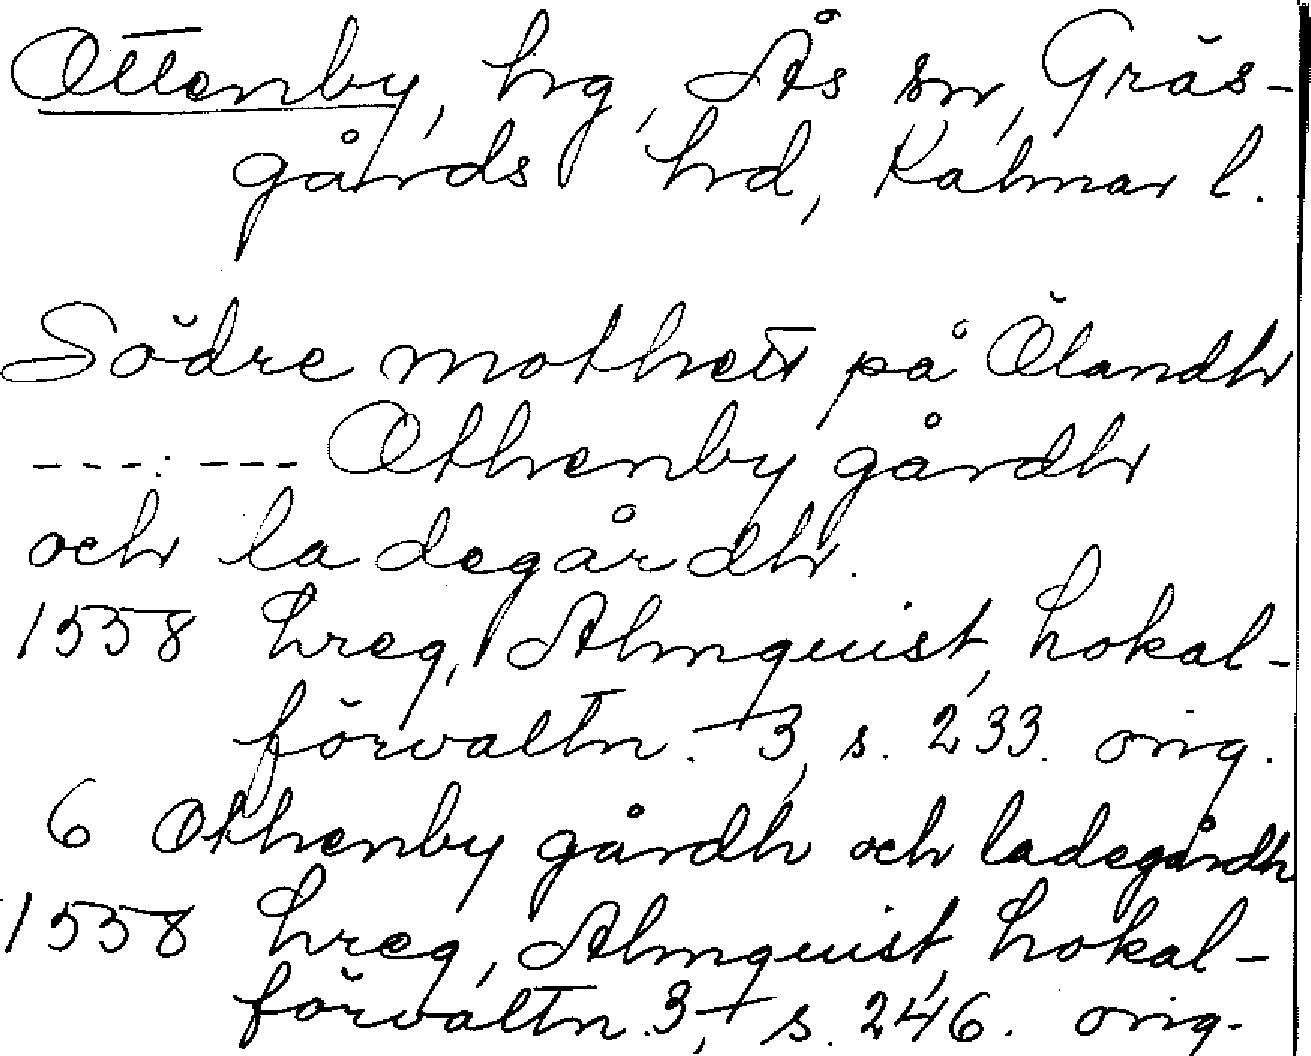 Ottenby, hg, Ås sn, Gräs-
gårds hd, Kalmar l.
Södre mothett på Ölandh
---:--- Othenby gårdh
och ladegårdh.
1558 Lreg, Almquist, Lokal-
förvaltn. 3, s. 233. orig.
6 Othenby gårdh och ladegårdh
1558 Lreg, Almquist, Lokal-
förvaltn. 3, s. 246. orig.